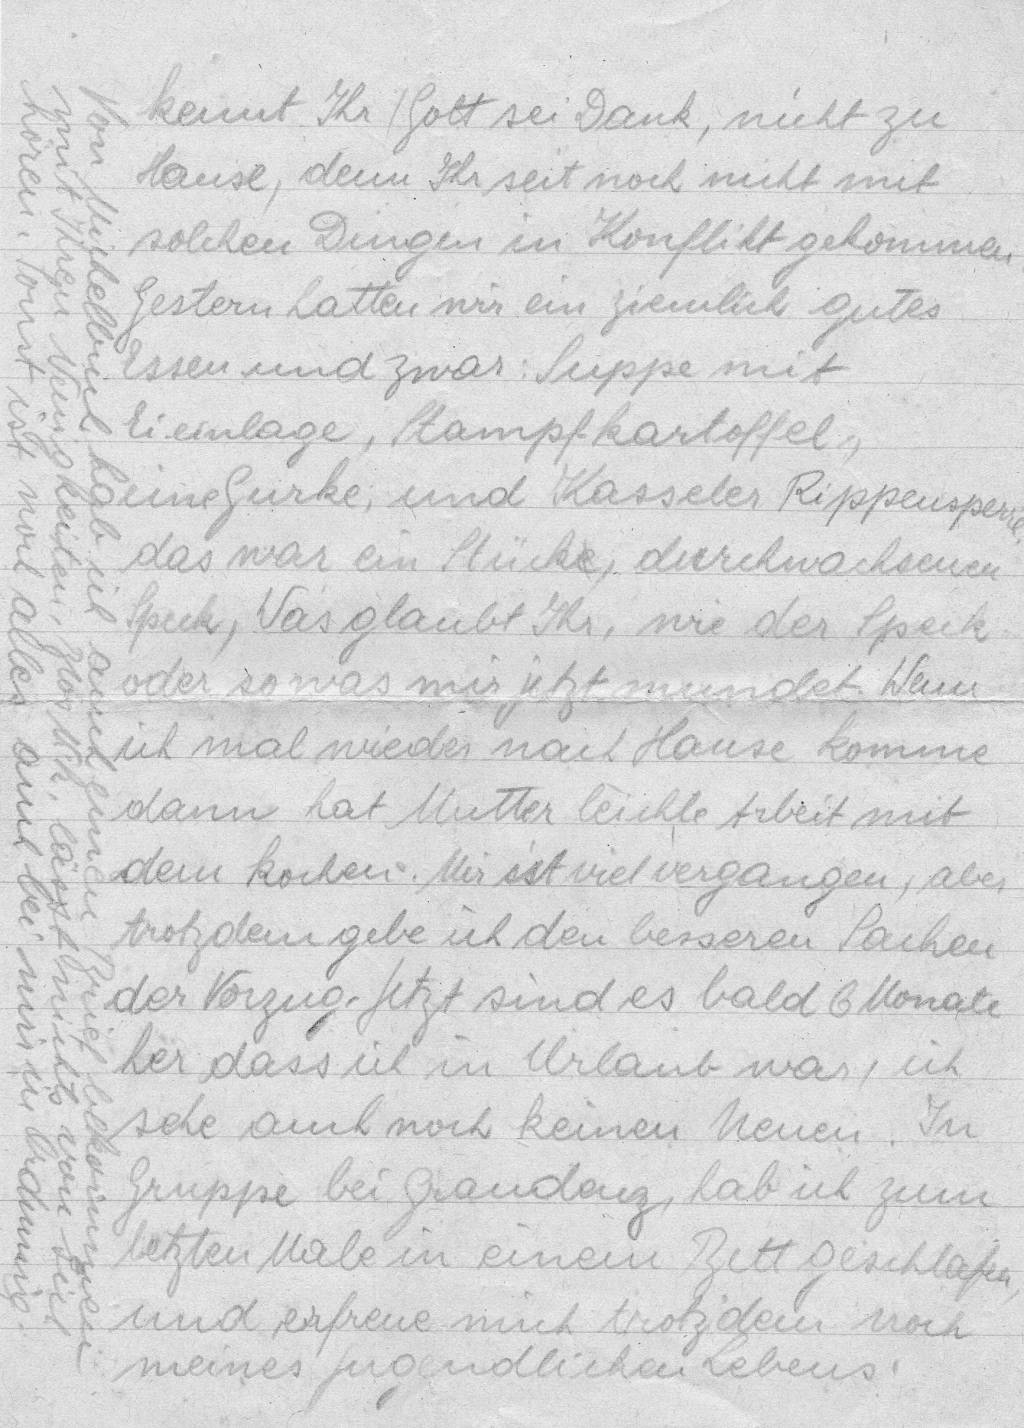 kennt Ihr Gott sei Dank, nicht zu
Hause, denn Ihr seit noch nicht mit
solchen Dingen in Konflikt gekommen
Gestern hatten wir ein ziemlich gutes
Essen und zwar: Suppe mit
Eieinlage, Stampfkartoffel,,
eine Gurke, und Kasseler Rippensperre,
das war ein Stücke, durchwachsenen
Speck, Was glaubt Ihr, wie der Speck
oder sowas mir jetzt mundet. Wenn
ich mal wieder nach Hause komme
dann hat Mutter leichte Arbeit mit
dem kochen. Mir ist viel vergangen, aber
trotzdem gebe ich den besseren Sachen
der Vorzug. Jetzt sind es bald 6 Monate
her dass ich in Urlaub war, ich
sehe auch noch keinen Neuen. In
Gruppe bei Graudenz, hab ich zum
letzten Male in einem Bett geschlafen,
und erfreue mich trotzdem noch
meines jugendlichen Lebens.
Von hab ich auch jenen Brief bekommen
mit Ihren Neuigkeiten. lässt nichts von sich
hören. Sonst ist noch alles auch bei mir in Ordnung.